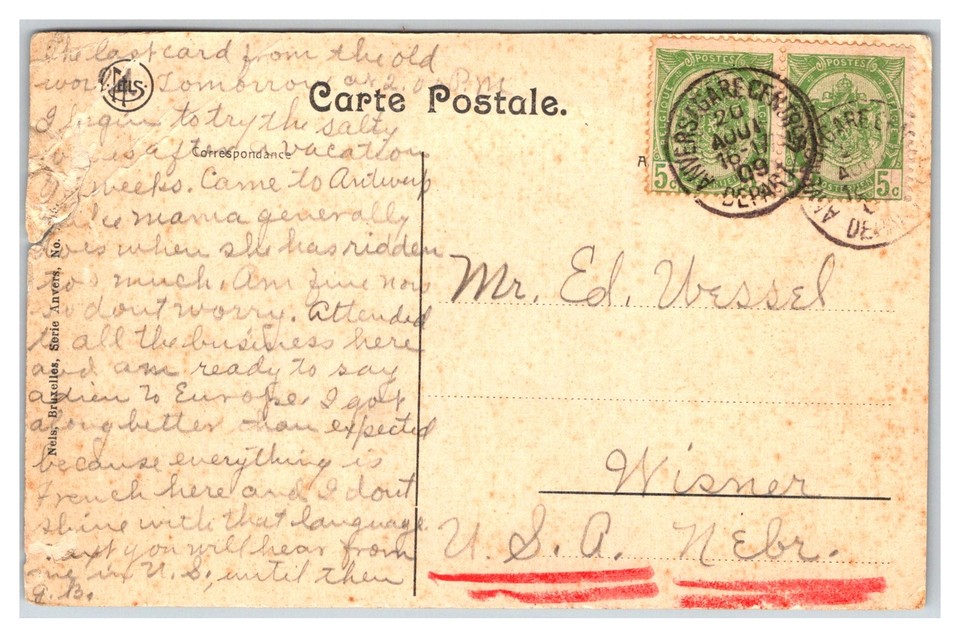 The last card from the old
world. Tomorrow at 2.00 P.M.
I begin to try the salty
after a vacation
weeks. Came to Antwerp
like mama generally
does when she has ridden
too much. Am fine now
so dont worry. Attended
to all the business here
and am ready to say
adieu to Europe. I got
along better than expected
because everything is
French here and I dont
shine with that language
next you will hear from
me in U.S. until then
G.B.
NELS
Carte Postale.
Correspondance
Nels, Bruxelles, Serie Anvers, No.
A
POSTES
POSTES
5c
5c
ANVERS (GARE CENTRALE)
20
AOUT
16-17
09
DEPART
Mr. Ed. Wessel
Wisner
U. S. A. Nebr.